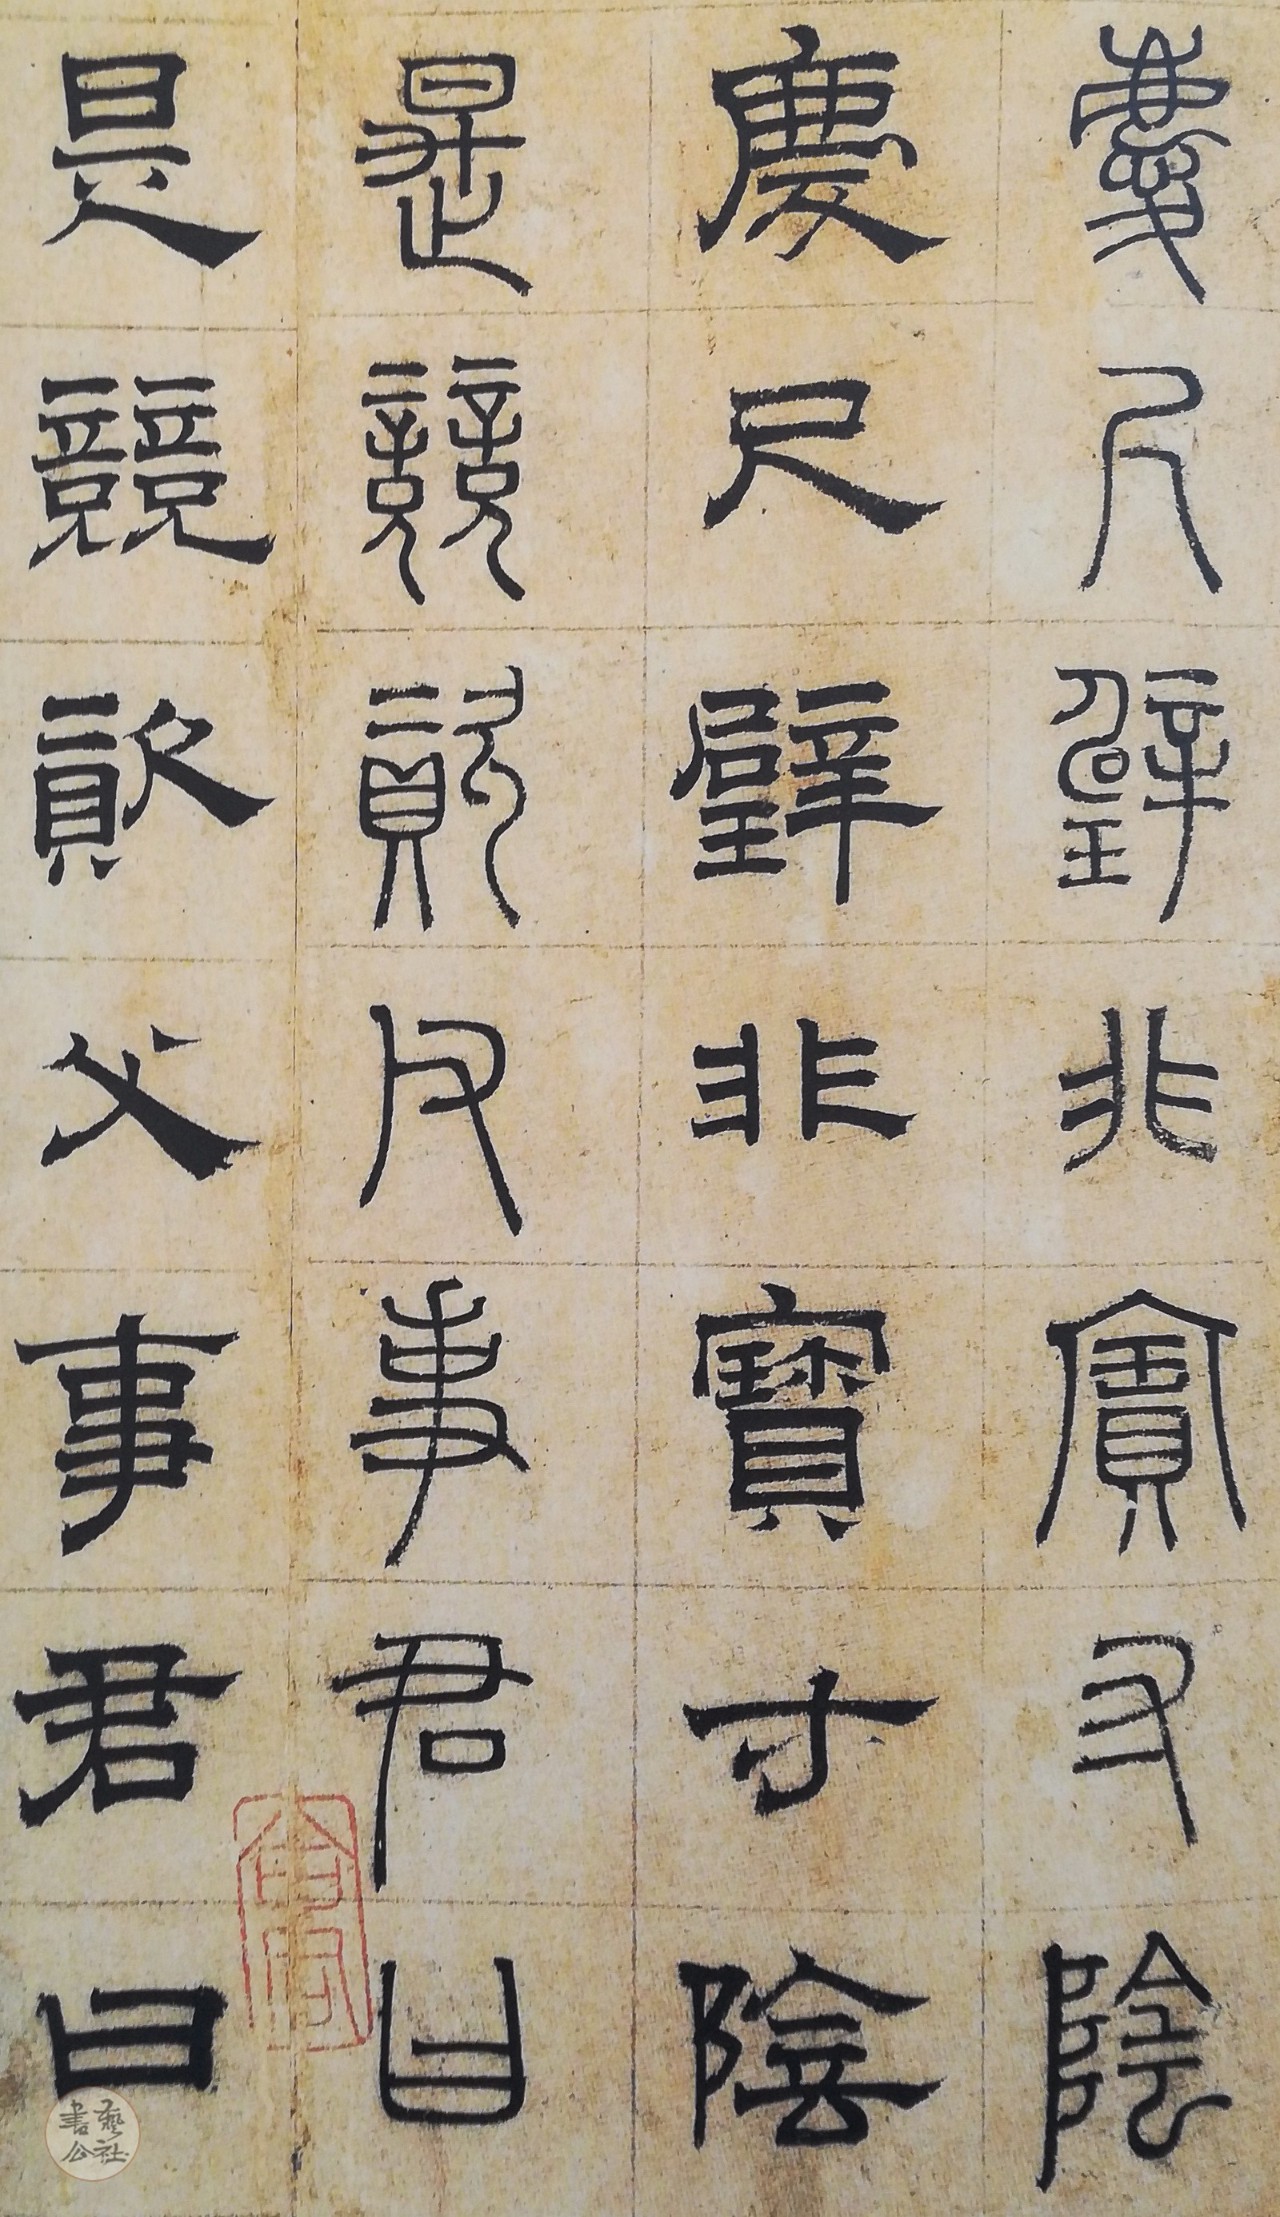 慶尺璧非寶寸陰
慶尺璧非寶寸陰
是競資父事君曰
是競資父事君曰
書藝公社